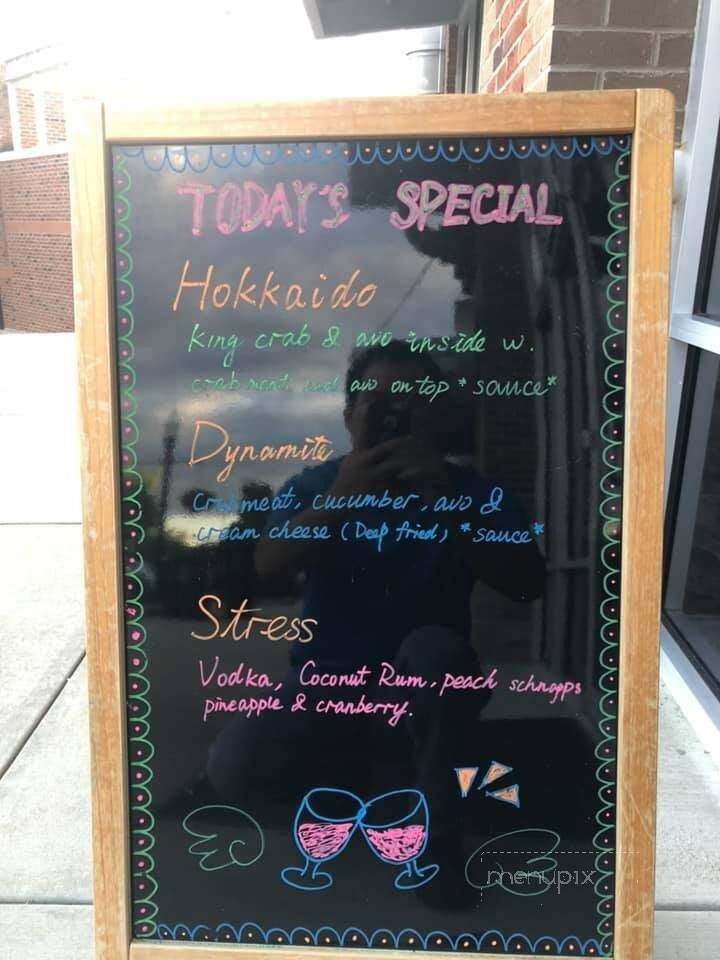 TODAY'S SPECIAL
Hokkaido
King crab & avo inside w.
crab meat and avo on top *sauce*
Dynamite
Crabmeat, cucumber, avo &
cream cheese (Deep fried) *sauce*
Stress
Vodka, Coconut Rum, peach schnapps
pineapple & cranberry.
menupix